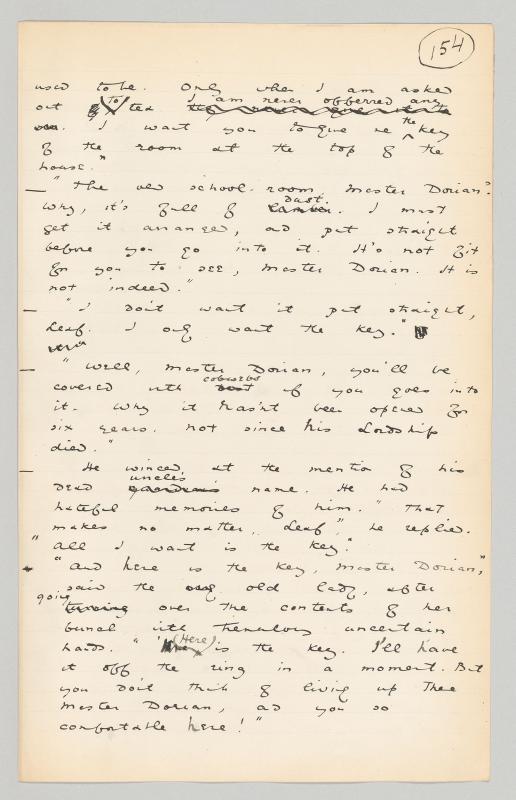 154
used to be. Only when I am asked
out to tea I am never offered any
I want you to give me the key
of the room at the top of the
house."
"The old school-room, Master Dorian?
Why, it's full of dust. I must
get it arranged, and put straight
before you go into it. It's not fit
for you to see, Master Dorian. It is
not indeed."
"I don't want it put straight,
Leaf. I only want the key."
"Well, Master Dorian, you'll be
covered with cobwebs if you goes into
it. Why it hasn't been opened for
six years. not since his Lordship
died."
He winced, at the mention of his
dead uncle's name. He had
hateful memories of him. "That
makes no matter, Leaf," he replied.
"All I want is the key."
"And here is the key, Master Dorian,"
said the old lady, after
going over the contents of her
bunch with tremulous uncertain
hands. "(Here) is the key. I'll have
it off the ring in a moment. But
you don't think of living up there
Master Dorian, and you so
comfortable here!"